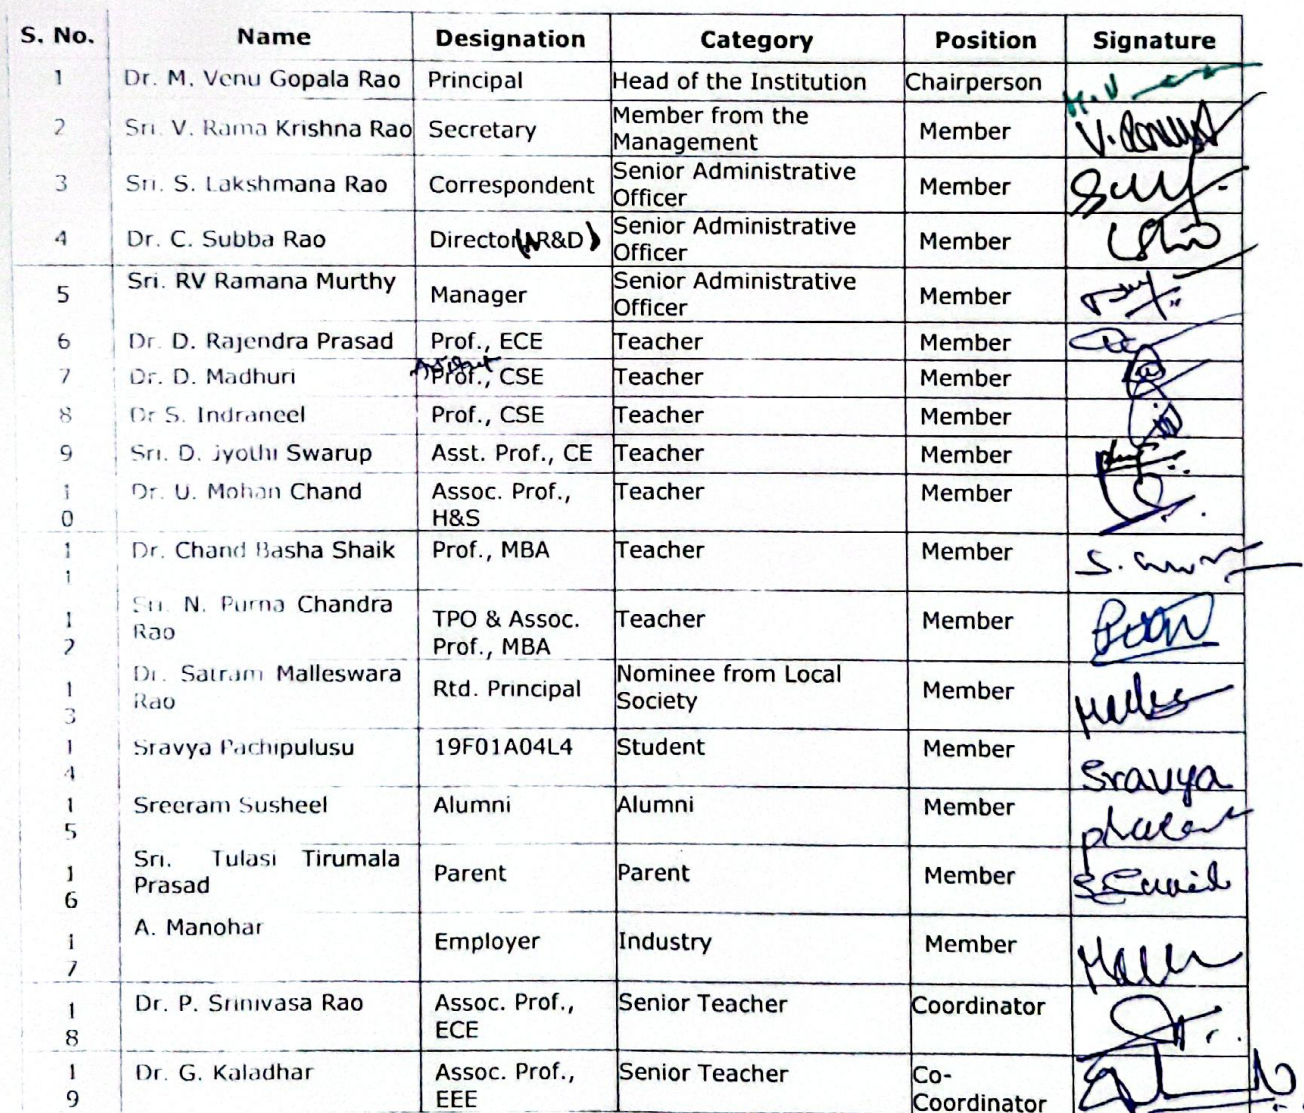 S. No. Name Designation Category Position Signature
1 Dr. M. Venu Gopala Rao Principal Head of the Institution Chairperson M.V
2 Sri. V. Rama Krishna Rao Secretary Member from the
Management Member
3 Sri. S. Lakshmana Rao Correspondent Senior Administrative
Officer Member
4 Dr. C. Subba Rao Director (R&D) Senior Administrative
Officer Member
5 Sri. RV Ramana Murthy Manager Senior Administrative
Officer Member
6 Dr. D. Rajendra Prasad Prof., ECE Teacher Member
7 Dr. D. Madhuri Prof., CSE Teacher Member
8 Dr S. Indraneel Prof., CSE Teacher Member
9 Sri. D. Jyothi Swarup Asst. Prof., CE Teacher Member
1
0 Dr. U. Mohan Chand Assoc. Prof.,
H&S Teacher Member
1
1 Dr. Chand Basha Shaik Prof., MBA Teacher Member
1
2 Sri. N. Purna Chandra
Rao TPO & Assoc.
Prof., MBA Teacher Member
1
3 Dr. Satram Malleswara
Rao Rtd. Principal Nominee from Local
Society Member
1
4 Sravya Pachipulusu 19F01A04L4 Student Member Sravya
1
5 Sreeram Susheel Alumni Alumni Member
1
6 Sri. Tulasi Tirumala
Prasad Parent Parent Member
1
7 A. Manohar Employer Industry Member
1
8 Dr. P. Srinivasa Rao Assoc. Prof.,
ECE Senior Teacher Coordinator
1
9 Dr. G. Kaladhar Assoc. Prof.,
EEE Senior Teacher Co-
Coordinator